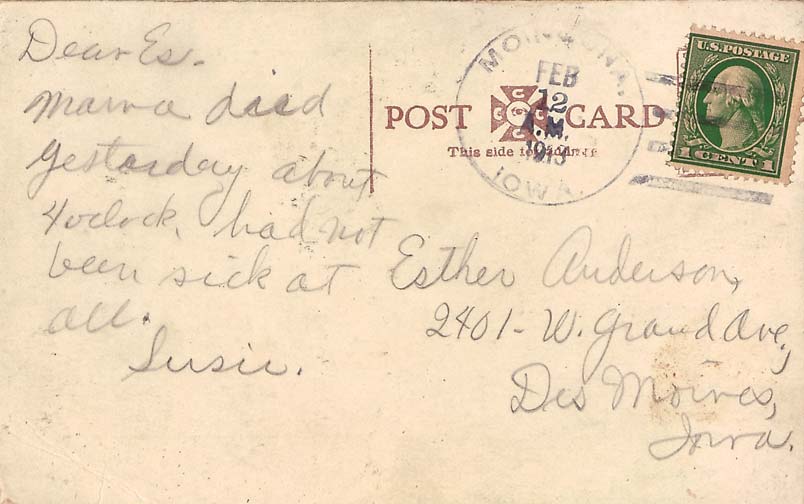 Dear Es.
Mama died
yestarday about
4oclock, had not
been sick at
all.
Susie.
POST CARD
This side for
MOINGONA,
FEB
12
A.M.
1913
IOWA
U.S. POSTAGE
1 CENT 1
Esther Anderson,
2401 - W. Grand Ave,
Des Moines,
Iowa.